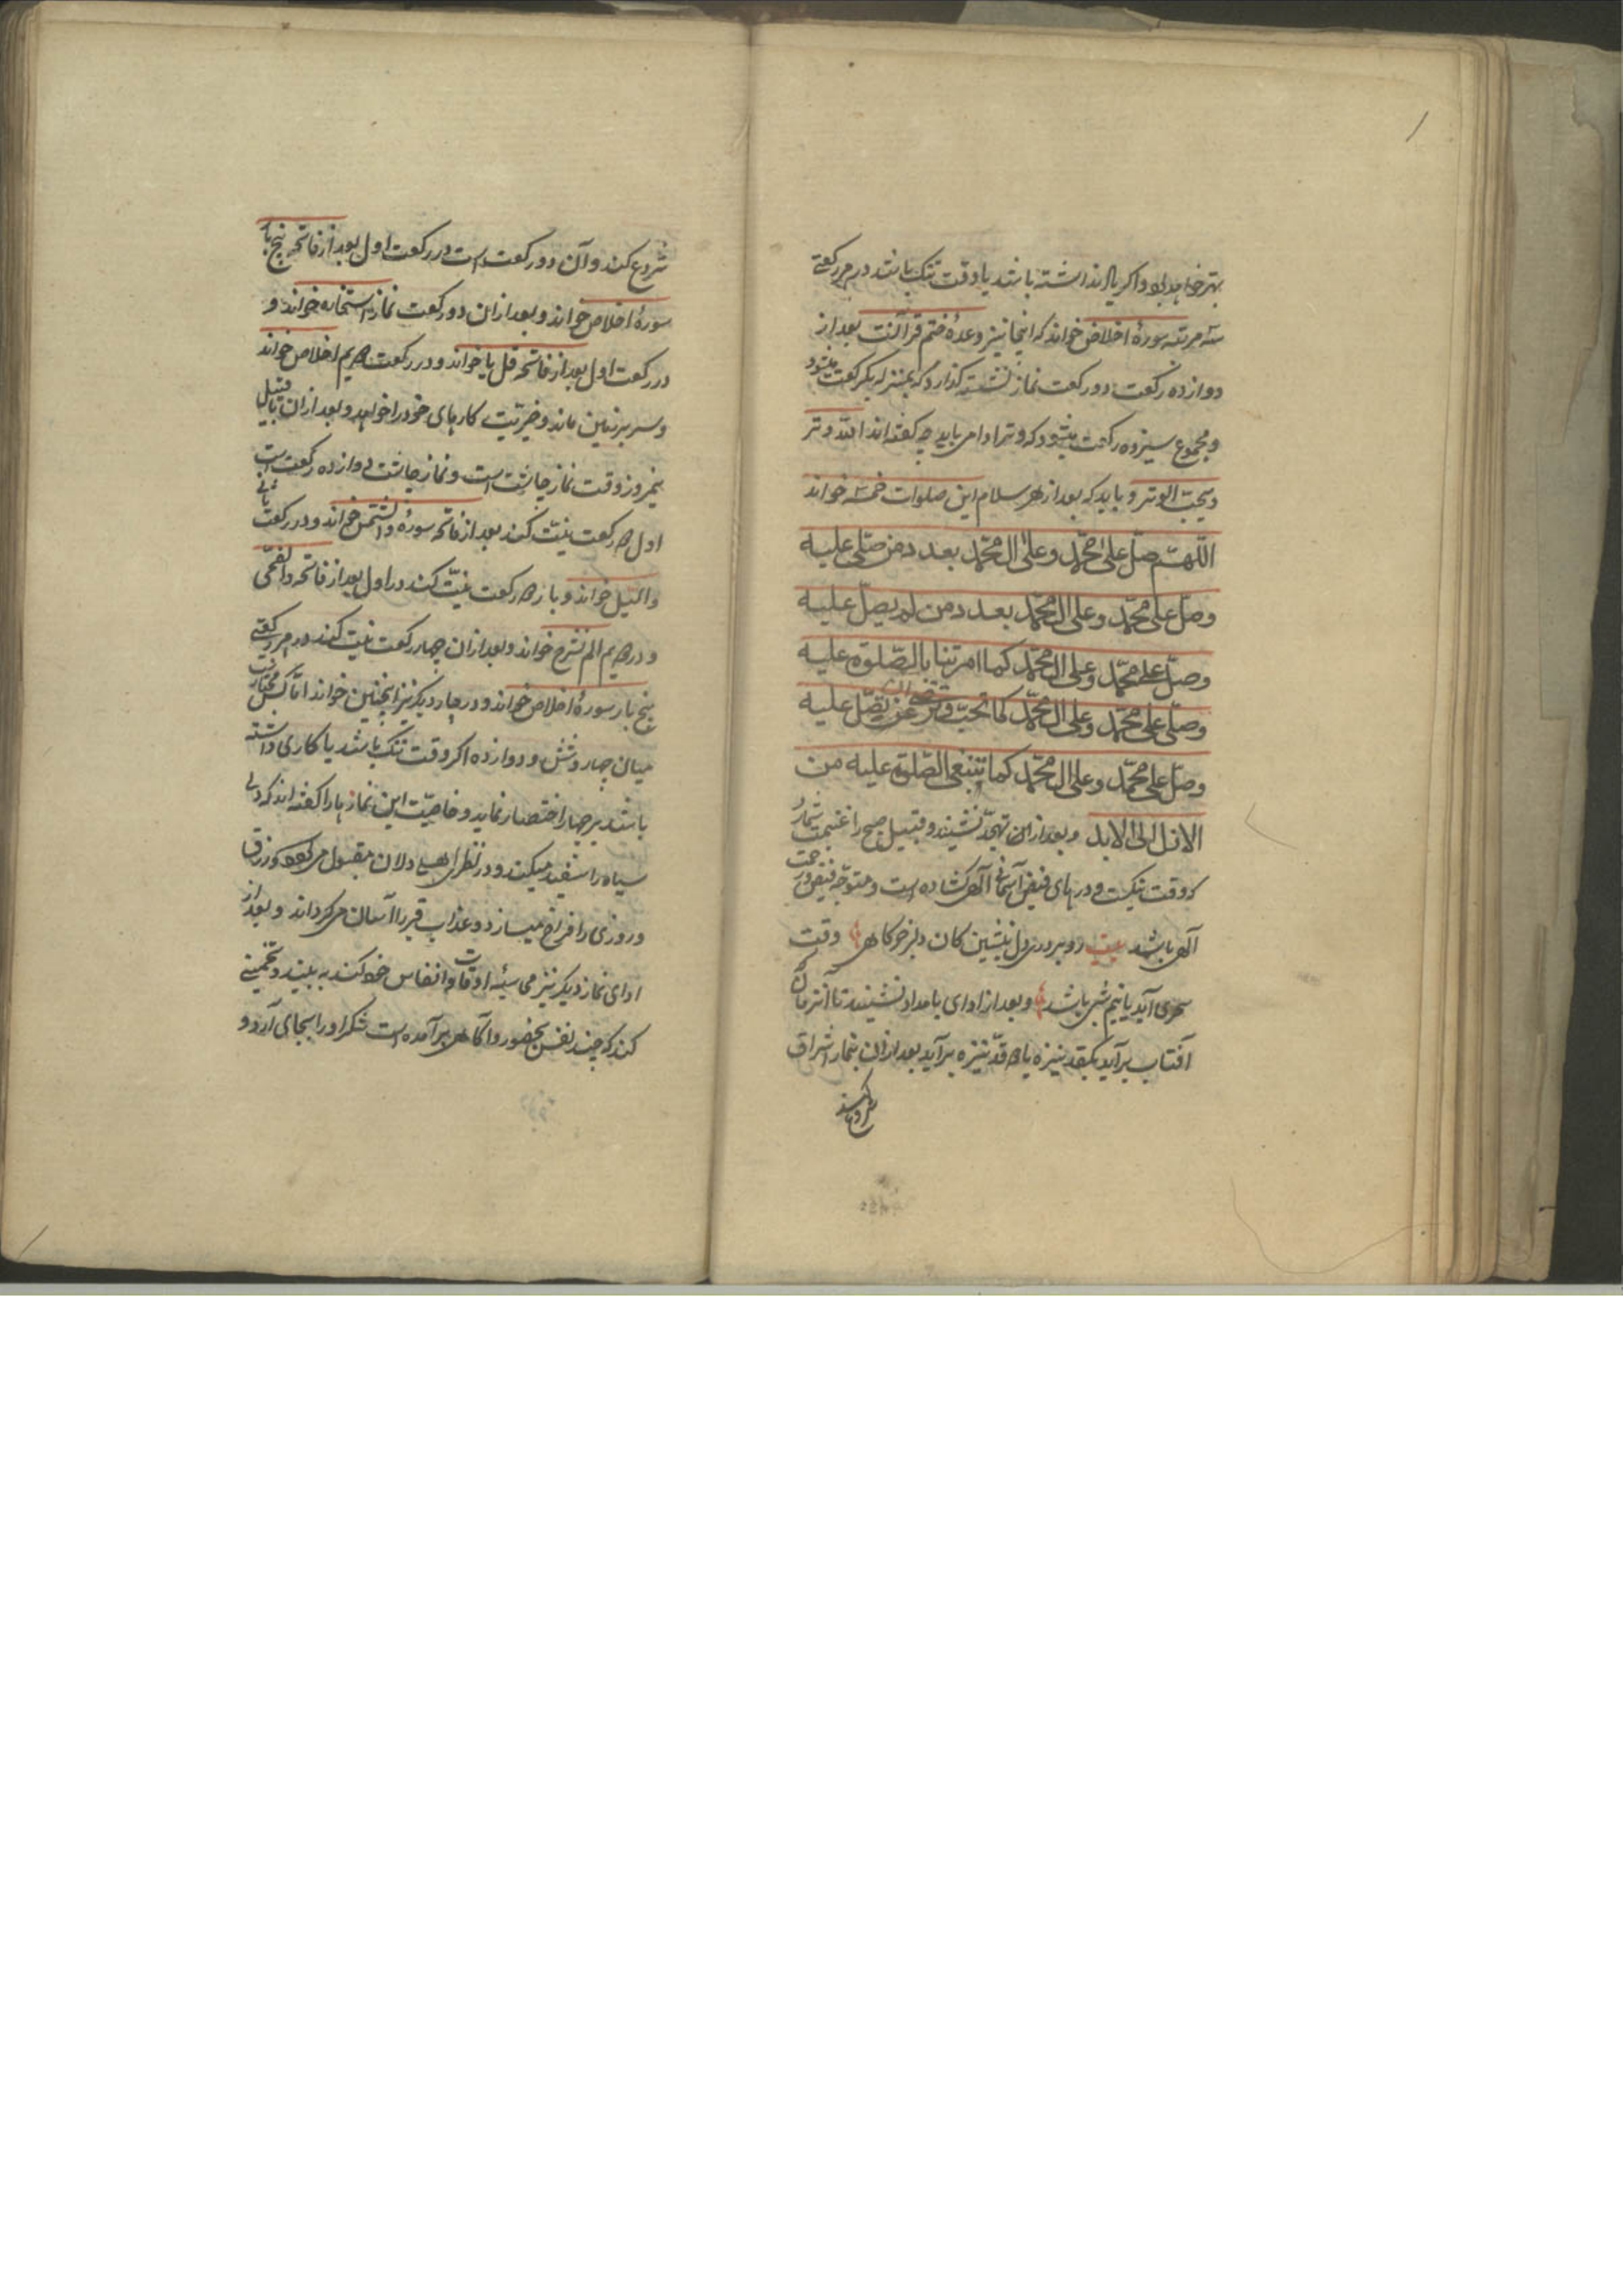 بهتر خواهد بود و اکر یاد نداشته باشد یا وقت تنک باشد در هر رکعتی
سه مرتبه سورهٔ اخلاص خواند که اینجا نیز وعدهٔ ختم قرآنست بعد از
دوازده رکعت دو رکعت نماز نشسته کذارد که بمنزله یکرکعت میشود
و مجموع سیزده رکعت میشود که وتر ادا می باید چه کفته اند الله وتر
و یحب الوتر و باید که بعد از هر سلام این صلوات خمسه خواند
اللّهمّ صلّ علی محمّد وعلی ال محمّد بعدد من صلّی علیه
وصلّ علی محمّد وعلی ال محمّد بعدد من لم یصلّ علیه
وصلّ علی محمّد وعلی ال محمّد کما امرتنا بالصّلوة علیه
وصلّی علی محمّد وعلی ال محمّد کما تحبّ وترضی ان تصلّ علیه
وصلّ علی محمّد وعلی ال محمّد کما تنبغی الصّلوة علیه من
الازل الی الابد و بعد ازان تهجّد نشیند و قبیل صبح را غنیمت شمارد
که وقت نیکست و درهای فیض آسمانی آلهی کشاده است و متوجّه فیض و رحمت
آلهی باشد بیت رو بر در دل نشین کان دلبر خرکاهی وقت
سحری آید یا نیم شبی باشد و بعد از ادای بامداد نشیند تا آنزمان که
آفتاب برآید یکقد نیزه یا دو قدّ نیزه برآید بعد ازان بنماز اشراق
شروع کند
شروع کند و آن دو رکعت است در رکعت اول بعد از فاتحه پنج بار
سورهٔ اخلاص خواند و بعد ازان دو رکعت نماز استخاره خواند و
در رکعت اول بعد از فاتحه قل یا خواند و در رکعت دویم اخلاص خواند
و سر بر زمین ماند و خیریّت کارهای خود را خواهد و بعد ازان تا قبیل
نیمروز وقت نماز چاشت است و نماز چاشت دوازده رکعت است
اول دو رکعت نیّت کند بعد از فاتحه سورهٔ والشّمس خواند و در رکعت ثانی
واللیل خواند و باز دو رکعت نیّت کند در اول بعد از فاتحه والضّحی
و در دویم الم نشرح خواند و بعد ازان چهار رکعت نیت کند در هر رکعتی
پنج بار سورهٔ اخلاص خواند و در چهار دیکر نیز اینچنین خواند امّا کس مختارست
میان چهار و شش و دوازده اکر وقت تنک باشد یا کاری داشته
باشد بر چهار اختصار نماید و خاصیّت این نمازها را کفته اند که دل
سیاه را سفید میکند و در نظر اهل دلان مقبول می کردد و رزق
و روزی را فراخ میسازد و عذاب قبر را آسان می کرداند و بعد از
ادای نماز دیکر نیز محاسبهٔ اوقات و انفاس خود کند به بیند و تخمینی
کند که چند نفس بحضور و آکاهی برآمده است شکر او را بجای آرد و